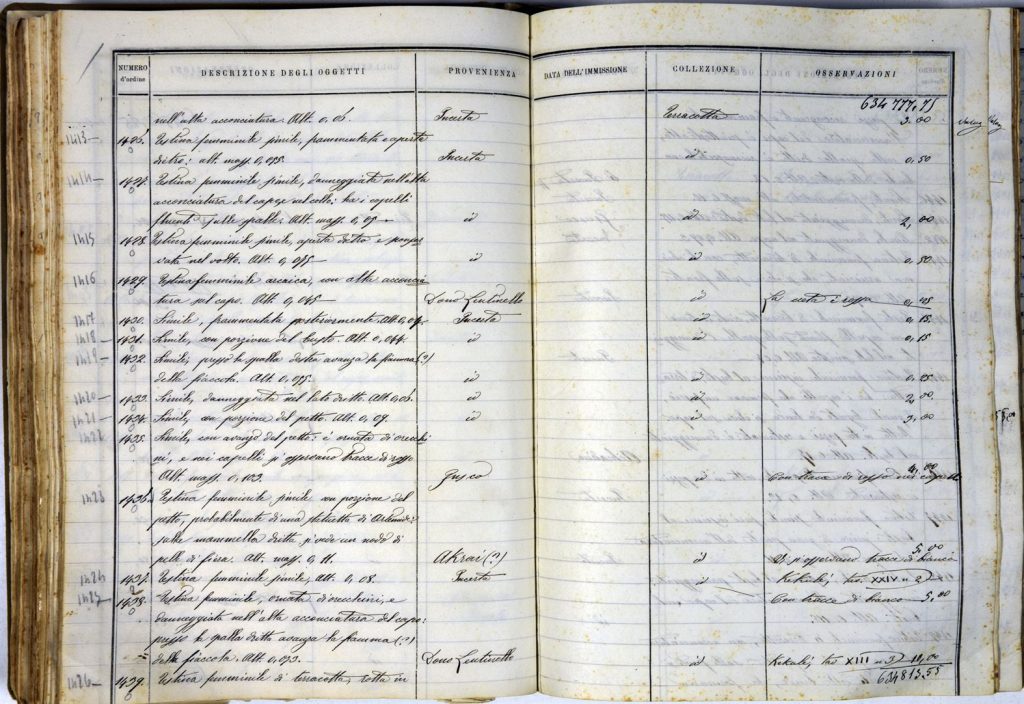 NUMERO d'ordine DESCRIZIONE DEGLI OGGETTI PROVENIENZA DATA DELL'IMMISSIONE COLLEZIONE OSSERVAZIONI
634 777,75
nell'alta acconciatura. Alt. 0,06. Incerta Terracotta 3,00
1413 1426. Testina femminile simile, frammentata e aperta
dietro: alt. mass. 0,055. Incerta id 0,50
1414 1427. Testina femminile simile, danneggiata nell'alta
acconciatura del capo e nel collo: ha i capelli
fluenti sulle spalle. Alt. mass. 0,05 id id 2,00
1415 1428. Testina femminile simile, aperta dietro e
nel volto. Alt. 0,055 id id 0,50
1416 1429. Testina femminile arcaica, con alta acconcia
tura sul capo. Alt. 0,045 Dono Lentinello id La creta è rossa
1417 1430. Simile, frammentata posteriormente. Alt. Incerta id 0,15.
1418 1431. Simile, con porzione del busto. Alt. 0,044. id id 0,15
1419 1432. Simile, presso la spalla destra avanza la fiamma (?)
della fiaccola. Alt. 0,055. id id
1420 1433. Simile, danneggiata nel lato dritto. Alt. 0,06. id id 2,00
1421 1434. Simile, con porzione del petto. Alt. 0,09. id id 3,00
1435. Simile, con avanzo del petto: è ornata di orecchi
ni, e nei capelli si osservano tracce di rosso
4,00
Alt. mass. 0,103. id Con tracce di rosso nei capelli
1423 1436. Testina femminile simile con porzione del
petto, probabilmente di una statuetta di Artemide:
sulla mammella dritta si vede un nodo di
5,00
pelle di fiera. Alt. mass. 0,11. Akrai (?) id Si osservano tracce di bianco
1424 1437. Testina femminile simile. Alt. 0,08. Incerta id Kekulé, tav. XXIV n. 2
1438. Testina femminile, ornata di orecchini, e Con tracce di bianco 5,00
danneggiata nell'alta acconciatura del capo:
presso la spalla dritta avanza la fiamma (?)
della fiaccola. Alt. 0,093. Dono Lentinello id Kekulé, tav XIII n. 10,00
1426 1439. Testina femminile di terracotta, rotta in 634813.55